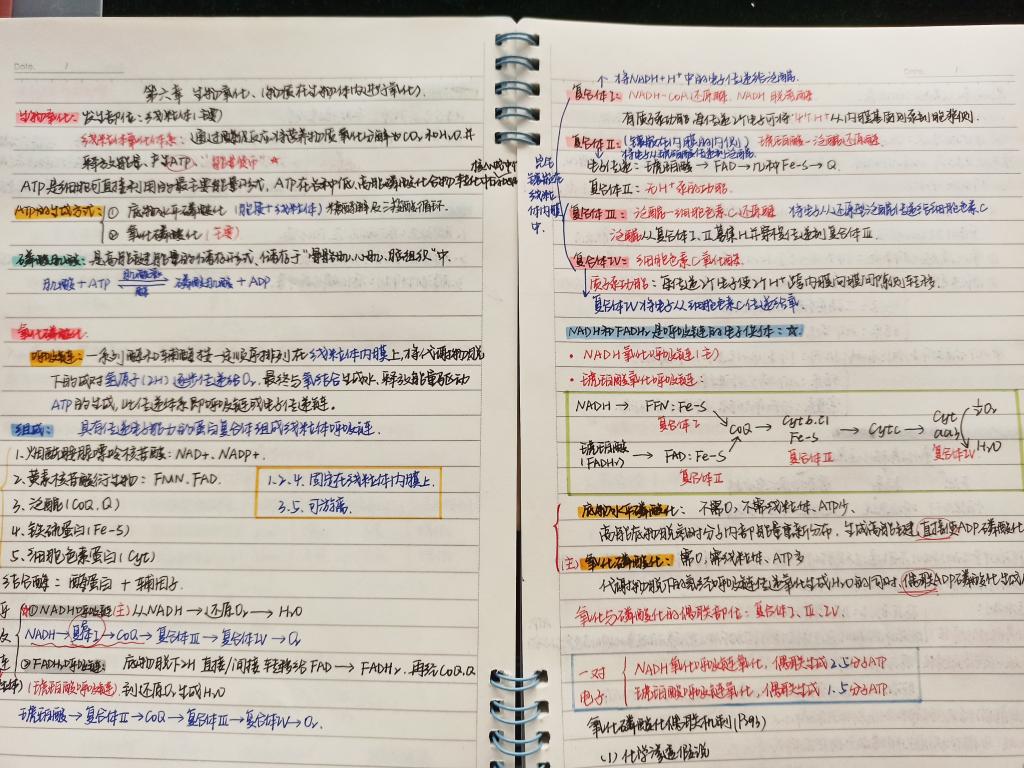 Date. /
第六章 生物氧化、(物质在生物体内进行氧化)
生物氧化: 发生部位:线粒体(主要)
线粒体氧化体系:通过酶促反应将营养物质氧化分解为CO₂和H₂O,并
释放能量,产生ATP、"能量货币" ★
ATP是细胞可直接利用的最主要能量形式,
ATP的生成方式: ① 底物水平磷酸化 (胞质+线粒体) 糖酵解及三羧酸循环.
② 氧化磷酸化 (主要)
磷酸肌酸: 是高能键能量的储存形式,储存于"骨骼肌、心肌、脑组织"中.
肌酸 + ATP 肌酸激酶 磷酸肌酸 + ADP
氧化磷酸化:
呼吸链: 一系列酶和辅酶按一定顺序排列在线粒体内膜上,将代谢物脱
下的成对氢原子(2H)逐步传递给O₂,最终与氧结合生成水,释放能量驱动
ATP的生成,此传递体系即呼吸链或电子传递链.
组成: 具有传递电子能力的蛋白复合体组成线粒体呼吸链.
1.烟酰胺腺嘌呤核苷酸:NAD+、NADP+.
2.黄素核苷酸衍生物: FMN. FAD.
1.2.4. 固定在线粒体内膜上.
3.泛醌(CoQ.Q)
3.5. 可游离.
4.铁硫蛋白(Fe-S)
5.细胞色素蛋白(Cyt)
结合酶: 酶蛋白 + 辅助因子.
①NADH呼吸链(主)从NADH→还原O₂→H₂O
NADH→复合体I→CoQ→复合体III→复合体IV→O₂
②FADH₂呼吸链: 底物脱下2H 直接/间接转移给FAD→FADH₂,再经CoQ.Q
(琥珀酸呼吸链) 到还原O₂生成H₂O
琥珀酸→复合体II→CoQ→复合体III→复合体IV→O₂.
↑ 将NADH+H⁺中的电子传递给泛醌.
复合体I: NADH-CoA还原酶、NADH脱氢酶
有质子泵功能 每传递2个电子可将"4个H⁺"从内膜基质侧泵到胞浆侧.
复合体II: (镶嵌在内膜的内侧) 琥珀酸-泛醌还原酶
↓将电子从琥珀酸传递到泛醌.
电子传递:琥珀酸→FAD→几种Fe-S→Q.
复合体II: 无H⁺泵的功能.
复合体III: 泛醌-细胞色素C还原酶 将电子从还原型泛醌传递给细胞色素C
泛醌从复合体I、II募集H并穿梭传递到复合体III.
复合体IV: 细胞色素C氧化酶.
质子泵功能: 每传递2个电子使2个H⁺跨内膜向膜间隙侧转移.
复合体IV将电子从细胞色素C传递给氧.
NADH和FADH₂是呼吸链的电子供体: ☆
• NADH氧化呼吸链(主)
• 琥珀酸氧化呼吸链
NADH → FFN:Fe-S
复合体I
CoQ → Cytb.C1 Fe-S → Cytc → Cyt aa3
复合体III
复合体IV
½O₂
H₂O
琥珀酸 (FADH₂) → FAD:Fe-S
复合体II
底物水平磷酸化: 不需O₂,不需线粒体、ATP少、
高能底物脱氢时分子内部能量重新分布,生成高能键,直接使ADP磷酸化
(主) 氧化磷酸化: 需O₂,需线粒体、ATP多
代谢物脱下的氢经呼吸链传递氧化生成H₂O的同时,偶联ADP磷酸化生成
氧化与磷酸化的偶联部位: 复合体I、III、IV
一对电子
NADH氧化呼吸链氧化,偶联生成2.5分子ATP
琥珀酸呼吸链氧化,偶联生成1.5分子ATP.
氧化磷酸化偶联机制(P93)
(1) 化学渗透假说